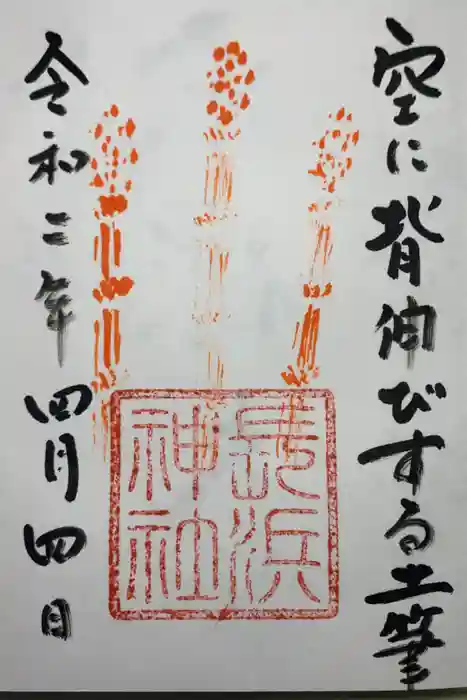 空に背伸びする土筆
長浜
神社
令和二年四月四日